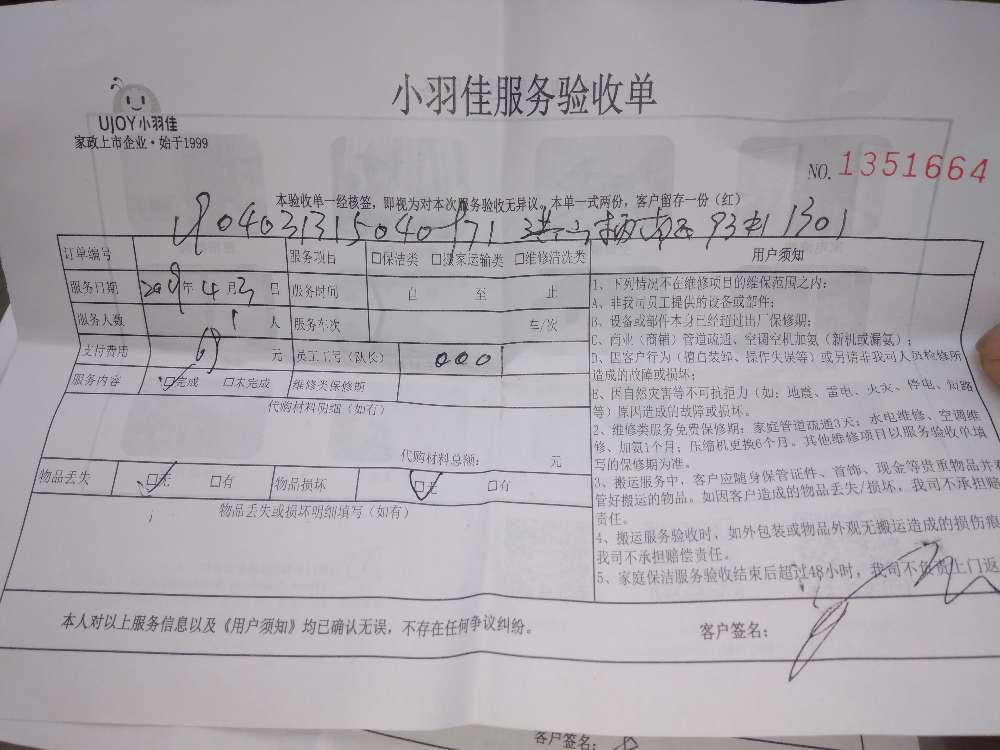 小羽佳服务验收单
UJOY小羽佳
家政上市企业·始于1999
NO. 1351664
本验收单一经核签，即视为对本次服务验收无异议。本单一式两份，客户留存一份（红）
1301
订单编号 服务项目 □保洁类 □搬家运输类 □维修清洗类 用户须知
服务日期 2019年4月3日 服务时间 自 至 止
服务人数 1人 服务车次 车/次
支付费用 元 员工工号（队长） 000
服务内容 □完成 □未完成 维修类保修期
代购材料明细（如有）
代购材料总额： 元
物品丢失 □无 □有 物品损坏 □无 □有
物品丢失或损坏明细填写（如有）
1、下列情况不在维修项目的维保范围之内：
A、非我司员工提供的设备或部件；
B、设备或部件本身已经超过出厂保修期；
C、商业（商铺）管道疏通、空调空机加氨（新机或漏氨）；
D、因客户行为（擅自装卸、操作失误等）或另请非我司人员检修所
造成的故障或损坏；
E、因自然灾害等不可抗拒力（如：地震、雷电、火灾、停电、短路
等）原因造成的故障或损坏。
2、维修类服务免费保修期：家庭管道疏通3天；水电维修、空调维
修、加氨1个月；压缩机更换6个月。其他维修项目以服务验收单填
写的保修期为准。
3、搬运服务中，客户应随身保管证件、首饰、现金等贵重物品并
管好搬运的物品。如因客户造成的物品丢失/损坏，我司不承担赔
责任。
4、搬运服务验收时，如外包装或物品外观无搬运造成的损伤痕
我司不承担赔偿责任。
5、家庭保洁服务验收结束后超过48小时，我司不负责上门返
本人对以上服务信息以及《用户须知》均已确认无误，不存在任何争议纠纷。
客户签名：
客户签名：